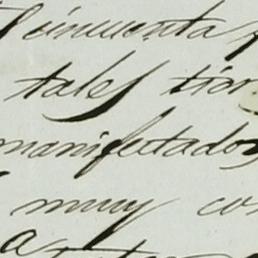 cincuenta
tales
manifestados
muy co
a